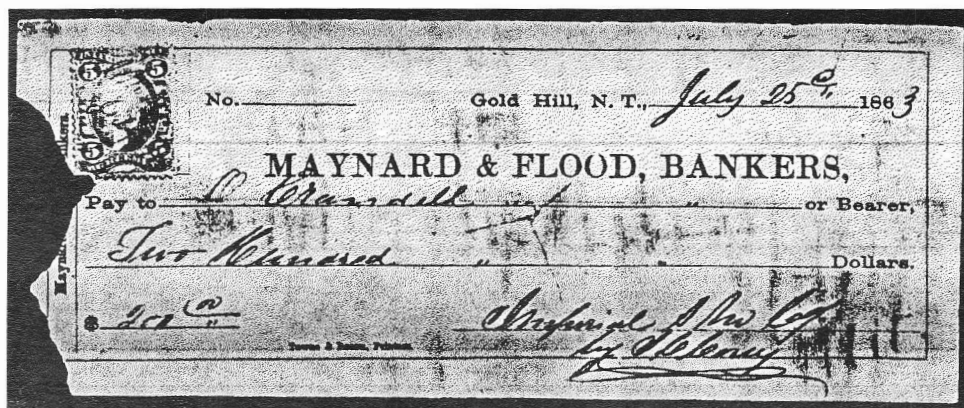 5 5
No. Gold Hill, N. T., July 25th 1863
5 5
MAYNARD & FLOOD, BANKERS,
Pay to L. Crandell " or Bearer,
Two Hundred " " Dollars.
$ 200 00/"
Imperial S M Co
by
Towne & Bacon, Printers.